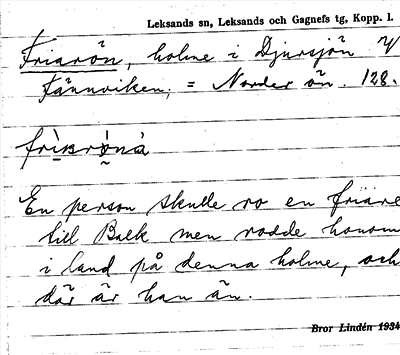 Leksands sn, Leksands och Gagnefs tg, Kopp. l.
Friarön, holme i Djursjön V
Fännviken; = Norder ön. 128.
En person skulle ro en friare
till Balk men rodde honom
i land på denna holme, och
där är han än.
Bror Lindén 1934